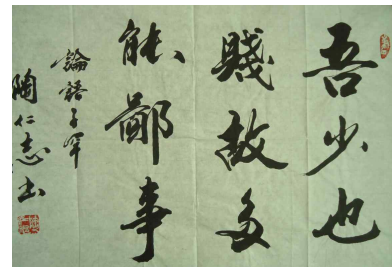 吾少也
賤故多
能鄙事
論語子罕
陶仁志书